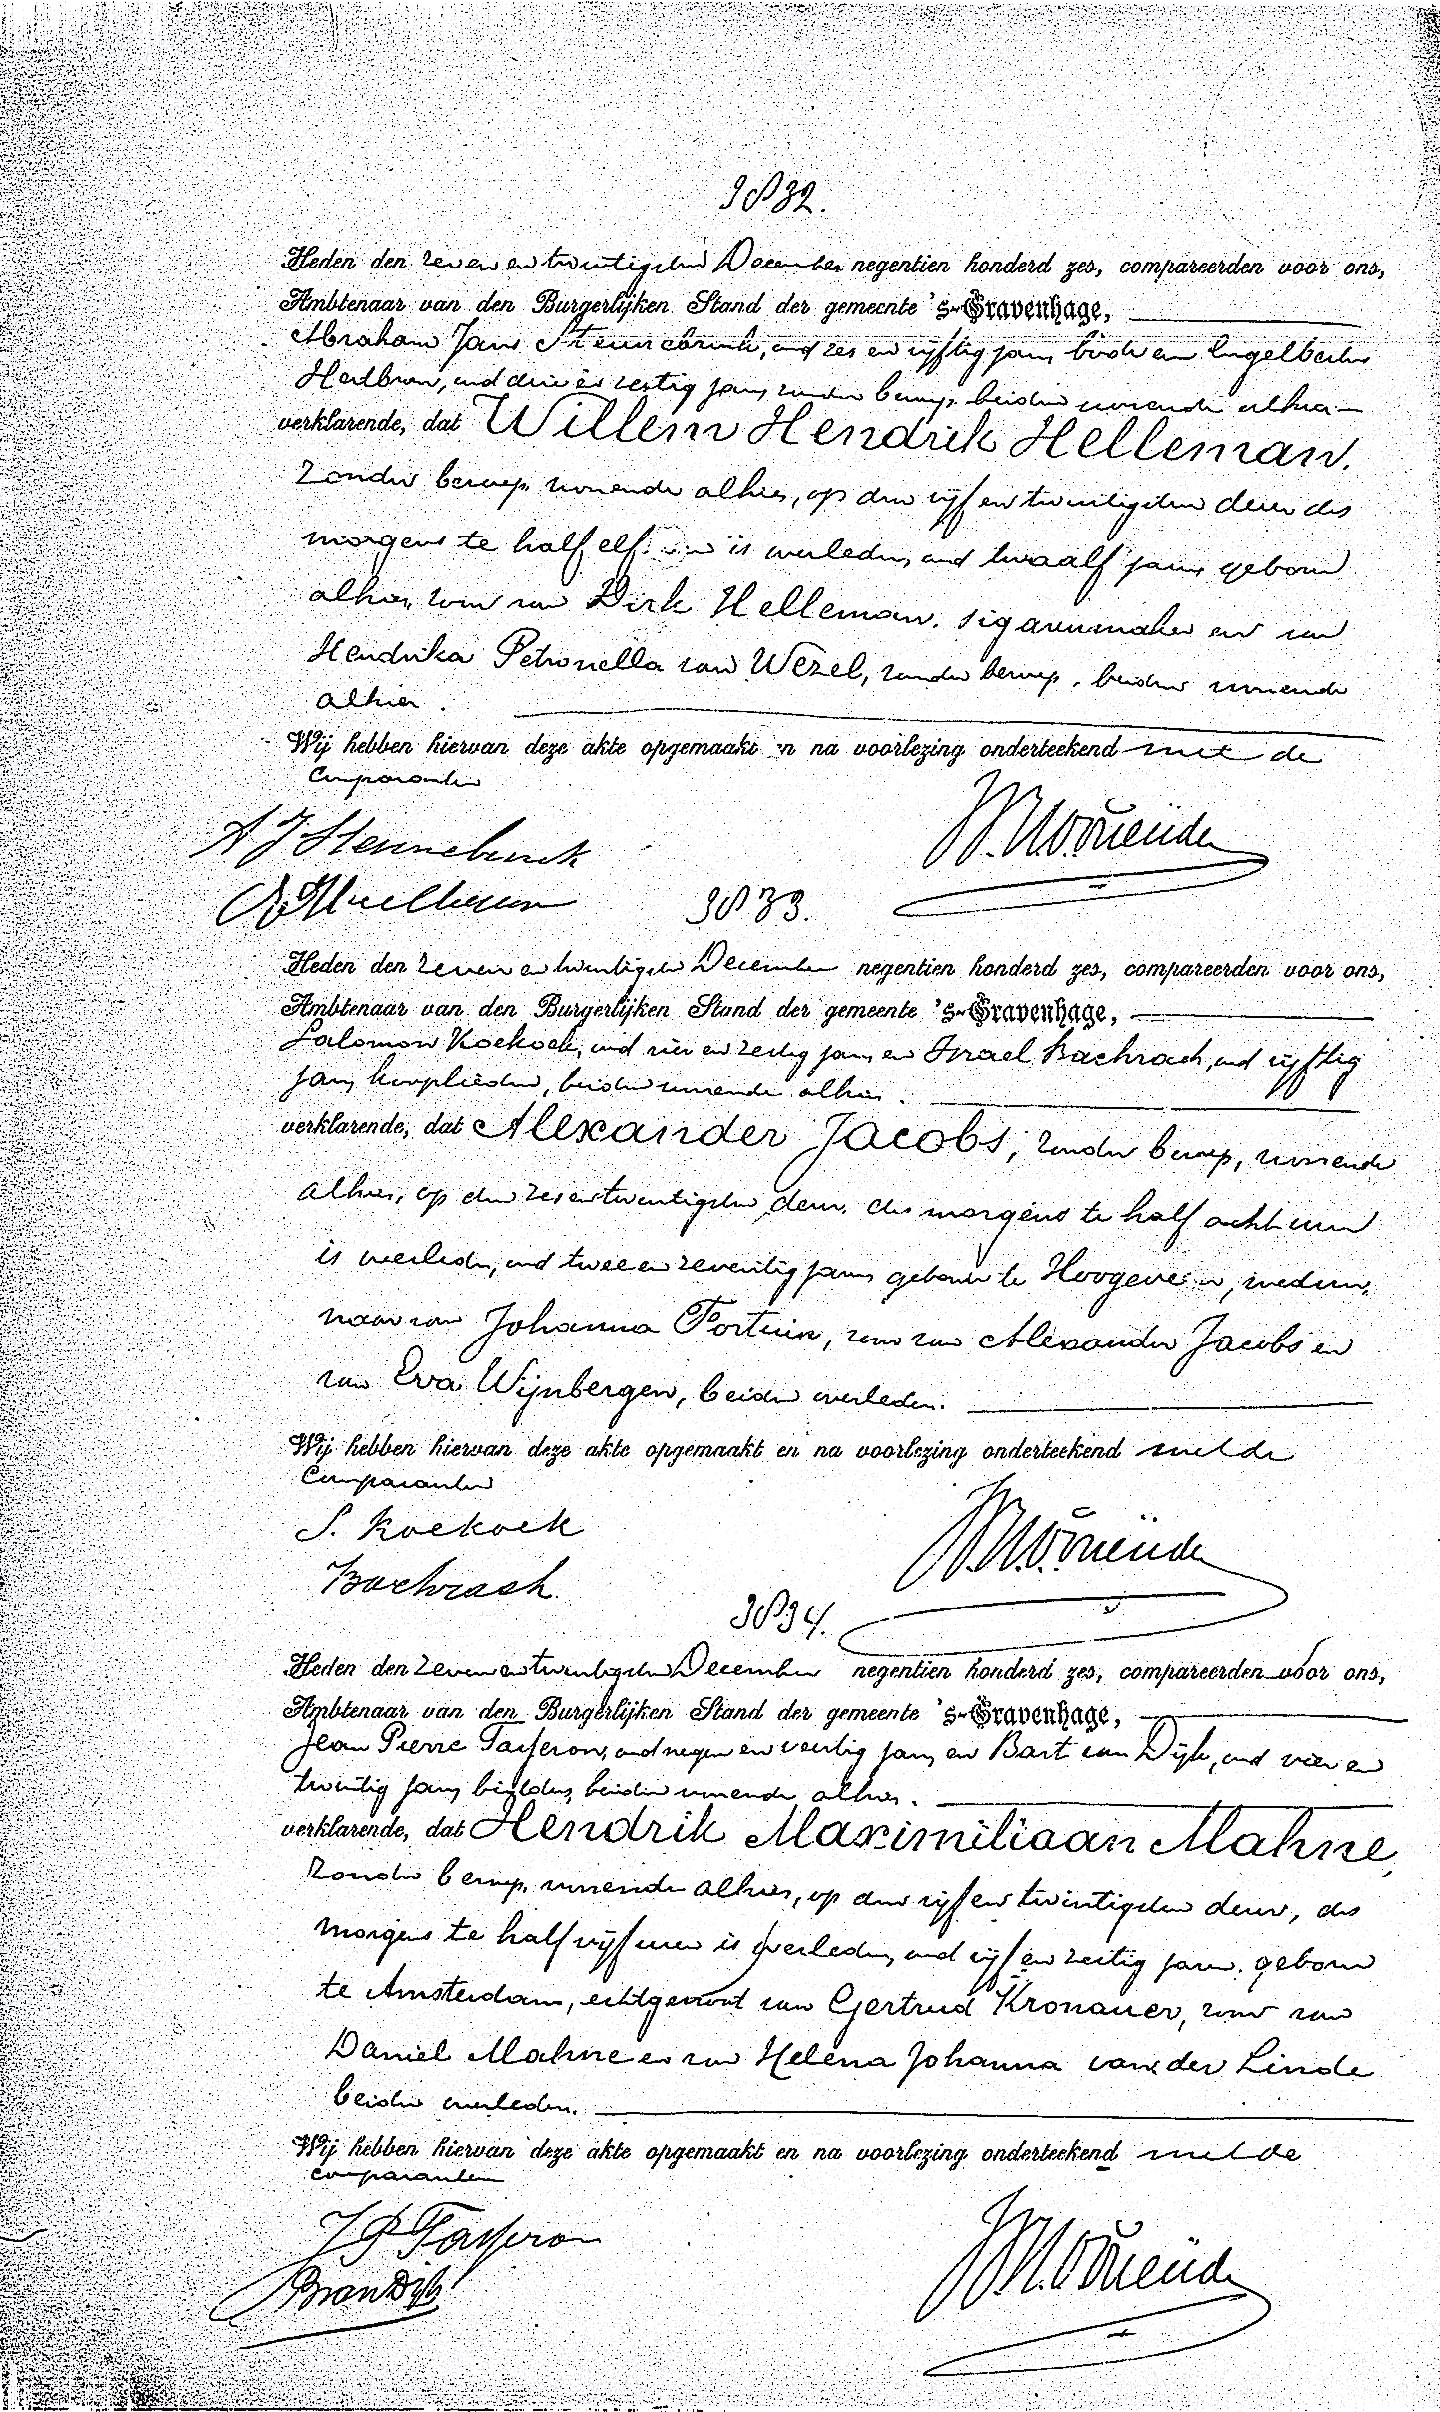 3832.
Heden den zeven en twintigsten December negentien honderd zes, compareerden voor ons,
Ambtenaar van den Burgerlijken Stand der gemeente 's-Gravenhage,
Abraham Jans oud zes en vijftig jaar, bode en Engelbertus
oud drie en zestig jaar, zonder beroep, beiden wonende alhier
verklarende, dat Willem Hendrik Helleman,
zonder beroep, wonende alhier, op den vijf en twintigsten dezer des
morgens te half elf uur is overleden, oud twaalf jaar, geboren
alhier, zoon van Dirk Helleman, sigarenmaker en van
Hendrika Petronella van Wezel, zonder beroep, beiden wonende
alhier.
Wij hebben hiervan deze akte opgemaakt en na voorlezing onderteekend met de
Comparanten
A J Stennebruck
3833.
Heden den zeven en twintigsten December negentien honderd zes, compareerden voor ons,
Ambtenaar van den Burgerlijken Stand der gemeente 's-Gravenhage,
Salomon Koekoek, oud vier en zestig jaar, en Israel Bachrach, oud vijftig
jaar, kooplieden, beiden wonende alhier.
verklarende, dat Alexander Jacobs, zonder beroep, wonende
alhier, op den zes en twintigsten dezer, des morgens te half acht uren
is overleden, oud twee en zeventig jaar, geboren te Hoogeveen, weduw-
naar van Johanna Fortuin, zoon van Alexander Jacobs en
van Eva Wijnbergen, beiden overleden.
Wij hebben hiervan deze akte opgemaakt en na voorlezing onderteekend met de
Comparanten
S. Koekoek
Bachrach.
3834.
Heden den zeven en twintigsten December negentien honderd zes, compareerden voor ons,
Ambtenaar van den Burgerlijken Stand der gemeente 's-Gravenhage,
Jean Pierre Tasseron, oud negen en veertig jaar, en Bart van Dijk, oud vier en
twintig jaar, beiden wonende alhier.
verklarende, dat Hendrik Maximiliaan Mahne,
zonder beroep, wonende alhier, op den vijf en twintigsten dezer, des
morgens te half vijf uren is overleden, oud vijf en zestig jaren, geboren
te Amsterdam, echtgenoot van Gertrud Kronauer, zoon van
Daniel Mahne en van Helena Johanna van der Linde
beiden overleden.
Wij hebben hiervan deze akte opgemaakt en na voorlezing onderteekend met de
comparanten
J P Tasseron
B van Dijk